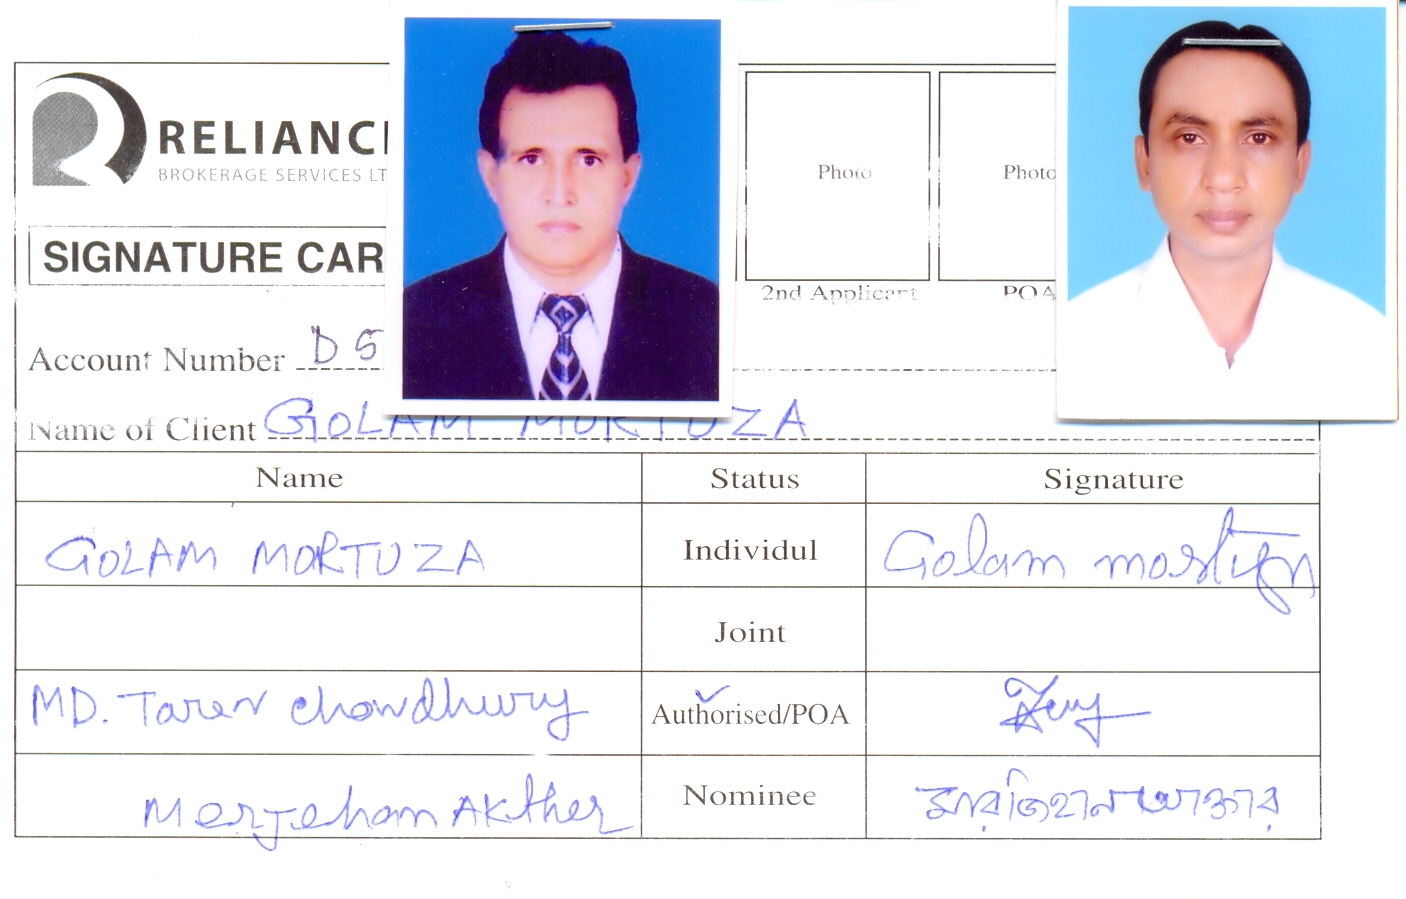 RELIANC
BROKERAGE SERVICES LT
SIGNATURE CAR
Photo
Photo
2nd Applicant
POA
Account Number D S
Name of Client GOLAM MORTUZA
Name Status Signature
GOLAM MORTUZA Individul Golam
Joint
MD. Tarer Chowdhury Authorised/POA
Merjeham AKther Nominee মারজিহান আক্তার